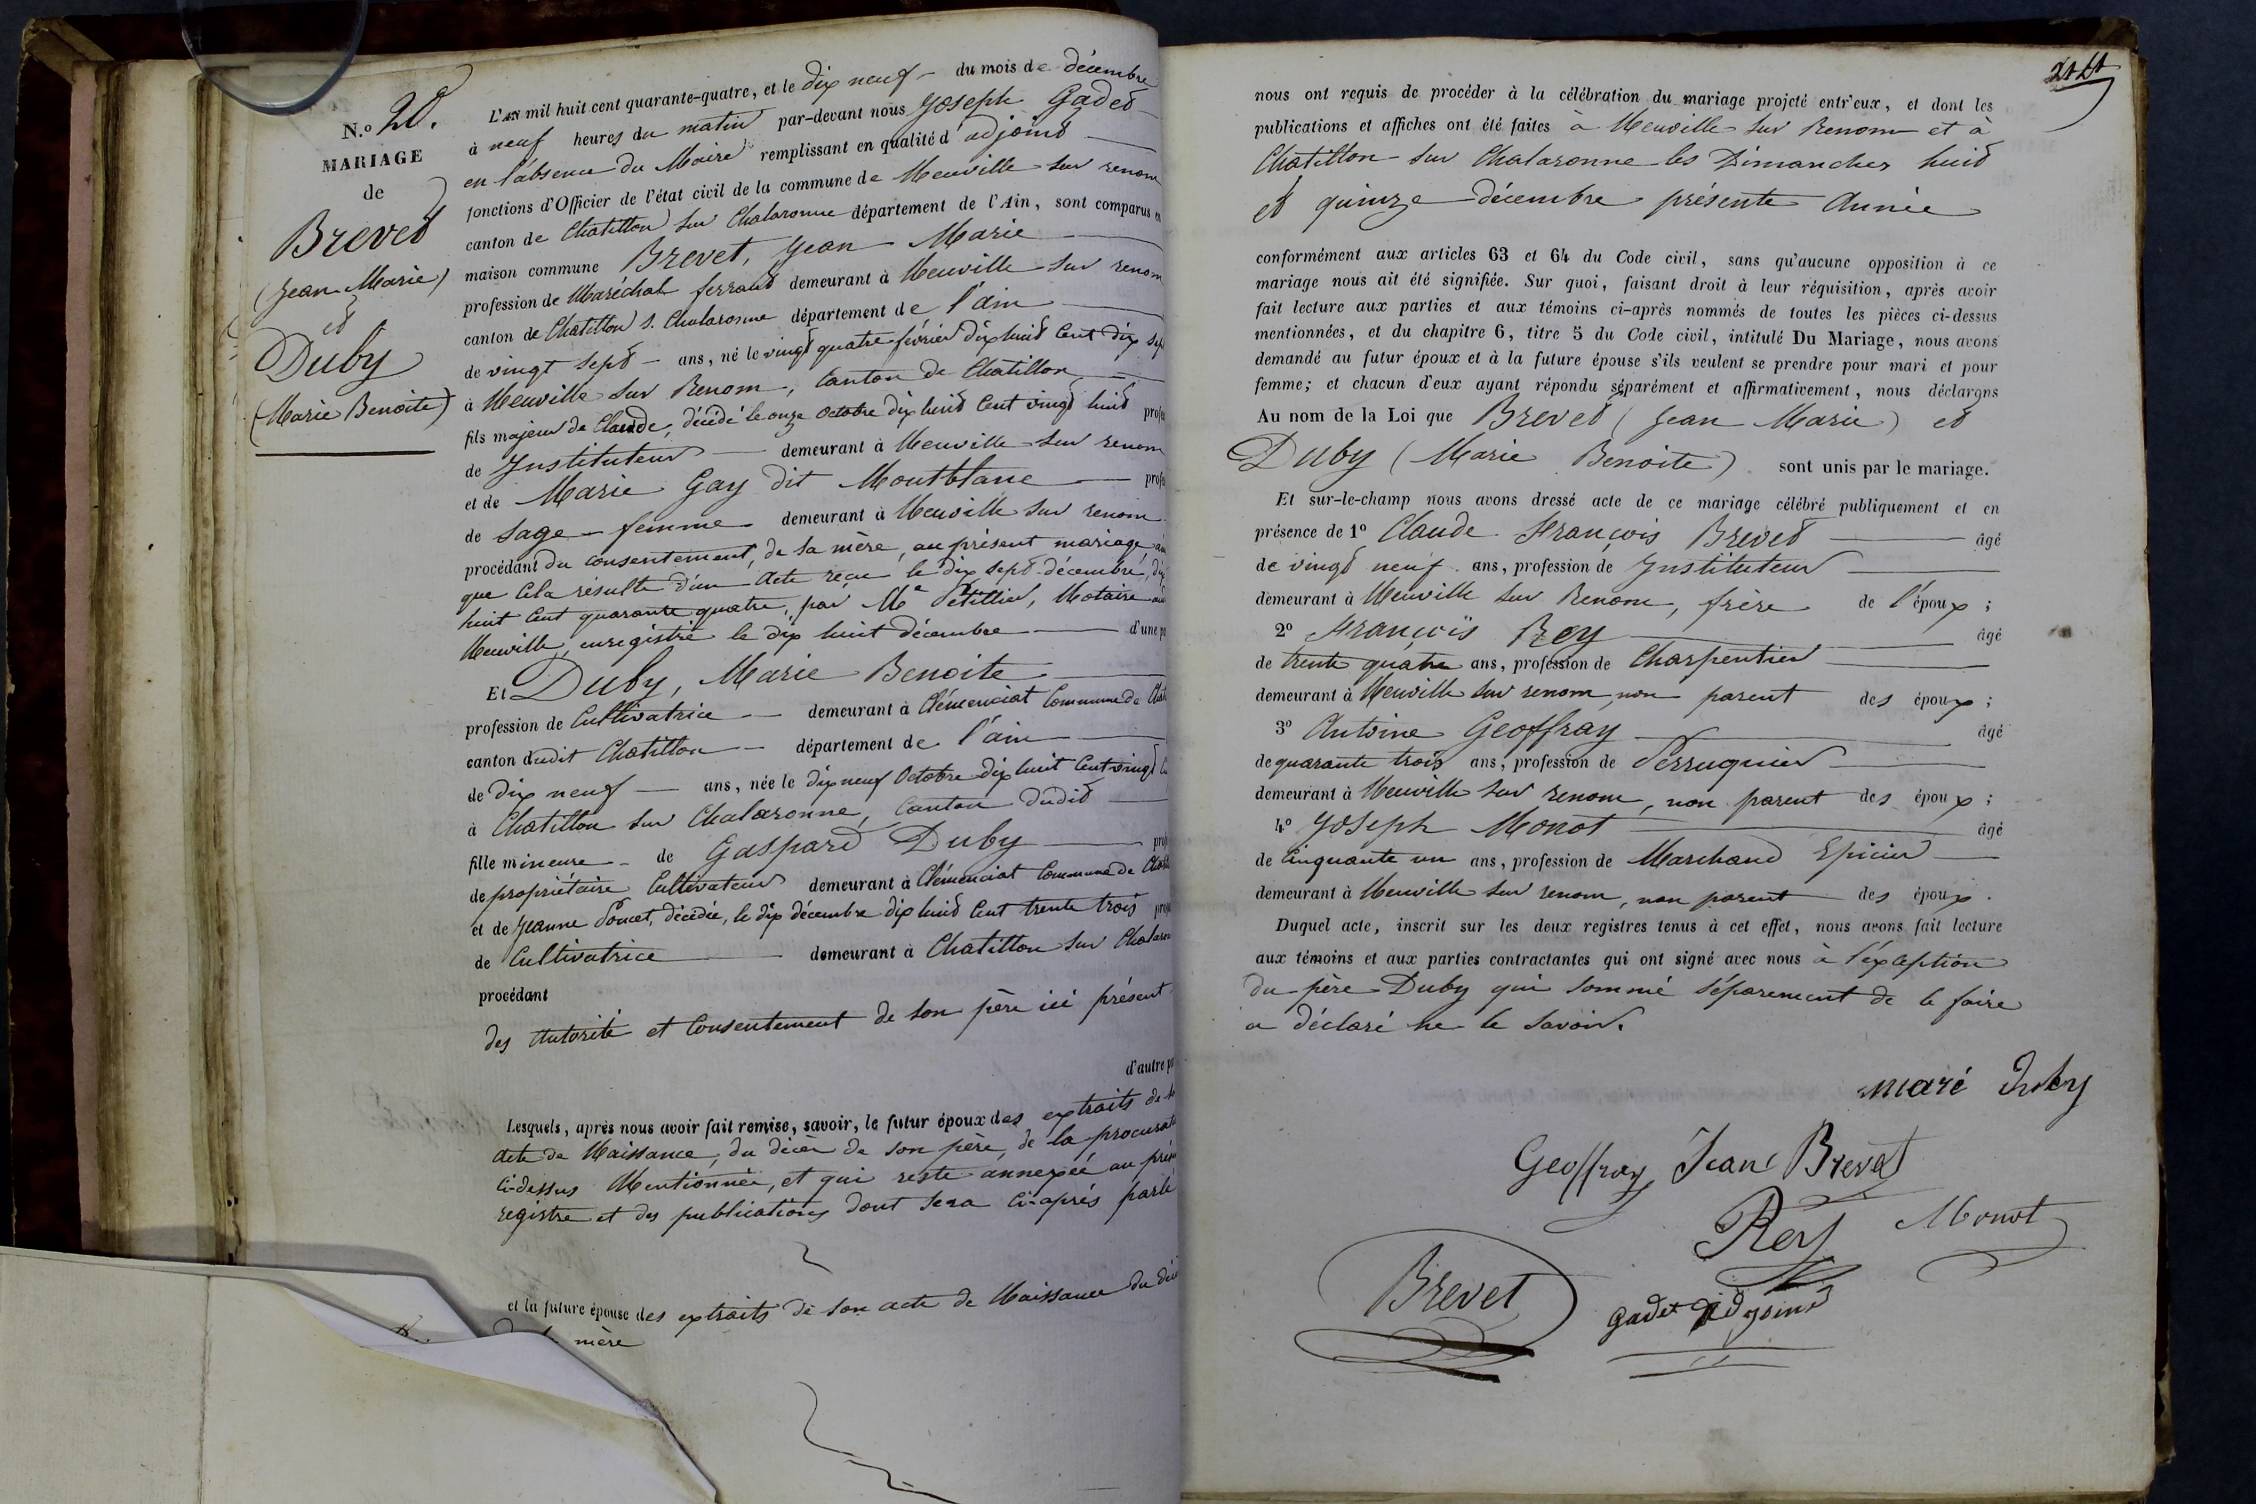 N.o 20.
MARIAGE
de
Brevet
(Jean Marie)
et
Duby
(Marie Benoite)
L'AN mil huit cent quarante-quatre, et le dix neuf du mois de décembre
à neuf heures du matin par-devant nous Joseph Gadet
en l'absence du Maire remplissant en qualité d'adjoint
fonctions d'Officier de l'état civil de la commune de Neuville sur renom
canton de Chatillon sur Chalaronne département de l'Ain, sont comparus en
maison commune Brevet, Jean Marie
profession de Maréchal ferrant demeurant à Neuville sur renom
canton de Chatillon s. Chalaronne département de l'ain
de vingt sept ans, né le vingt quatre février dix huit Cent dix sept
à Neuville sur Renom, Canton de Chatillon
fils majeur de Claude, décédé le onze Octobre dix huit Cent vingt huit profes
de Instituteur demeurant à Neuville sur renom
et de Marie Gay dit Montblanc profes
de sage-femme demeurant à Neuville sur renom
procédant du consentement, de sa mère, au présent mariage, ain
que Cela résulte d'un Acte reçu le dix sept décembre, dix
huit Cent quarante quatre, par Me Pétillier, Notaire aud
Neuville, enregistré le dix huit décembre d'une pa
Et Duby, Marie Benoite
profession de Cultivatrice demeurant à Clémenciat Commune de Chati
canton dudit Chatillon département de l'ain
de dix neuf ans, née le dix neuf Octobre dix huit Cent vingt Ci
à Chatillon sur Chalaronne, Canton dudit
fille mineure de Gaspard Duby prof
de propriétaire Cultivateur demeurant à Clémenciat Commune de Chatill
et de Jeanne Poncet, décédée, le dix décembre dix huit Cent trente trois prof
de Cultivatrice demeurant à Chatillon sur Chalaron
procédant
des Autorité et Consentement de son père ici présent
d'autre pa
Lesquels, après nous avoir fait remise, savoir, le futur époux des extraits de so
acte de Naissance, du décès de son père, de la procurati
Ci-dessus Mentionnée, et qui reste annexée au prése
registre et des publications dont sera Ci-après parlé
et la future épouse des extraits de son acte de Naissance du déc
mère
nous ont requis de procéder à la célébration du mariage projeté entr'eux, et dont les
publications et affiches ont été faites à Neuville sur Renom et à
Chatillon sur Chalaronne les Dimanches huit
et quinze décembre présente Année
conformément aux articles 63 et 64 du Code civil, sans qu'aucune opposition à ce
mariage nous ait été signifiée. Sur quoi, faisant droit à leur réquisition, après avoir
fait lecture aux parties et aux témoins ci-après nommés de toutes les pièces ci-dessus
mentionnées, et du chapitre 6, titre 5 du Code civil, intitulé Du Mariage, nous avons
demandé au futur époux et à la future épouse s'ils veulent se prendre pour mari et pour
femme; et chacun d'eux ayant répondu séparément et affirmativement, nous déclarons
Au nom de la Loi que Brevet (Jean Marie) et
Duby (Marie Benoite) sont unis par le mariage.
Et sur-le-champ nous avons dressé acte de ce mariage célébré publiquement et en
présence de 1o Claude François Brevet âgé
de vingt neuf ans, profession de Instituteur
demeurant à Neuville sur Renom, frère de l'époux;
2o François Rey âgé
de trente quatre ans, profession de Charpentier
demeurant à Neuville sur renom, non parent des époux;
3o Antoine Geoffray âgé
de quarante trois ans, profession de Perruquier
demeurant à Neuville sur renom, non parent des époux;
4o Joseph Monot âgé
de Cinquante un ans, profession de Marchand Epicier
demeurant à Neuville sur renom, non parent des époux.
Duquel acte, inscrit sur les deux registres tenus à cet effet, nous avons fait lecture
aux témoins et aux parties contractantes qui ont signé avec nous à l'exception
du père Duby qui sommé séparement de le faire
a déclaré ne le savoir.
marié Duby
Geoffray Jean Brevet
Rey Monot
Brevet
gadet adjoint